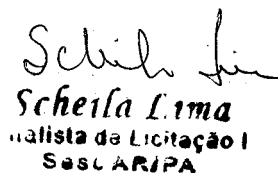 Scheila Lima
Scheila Lima
nalista de Licitação I
Sesc AR/PA